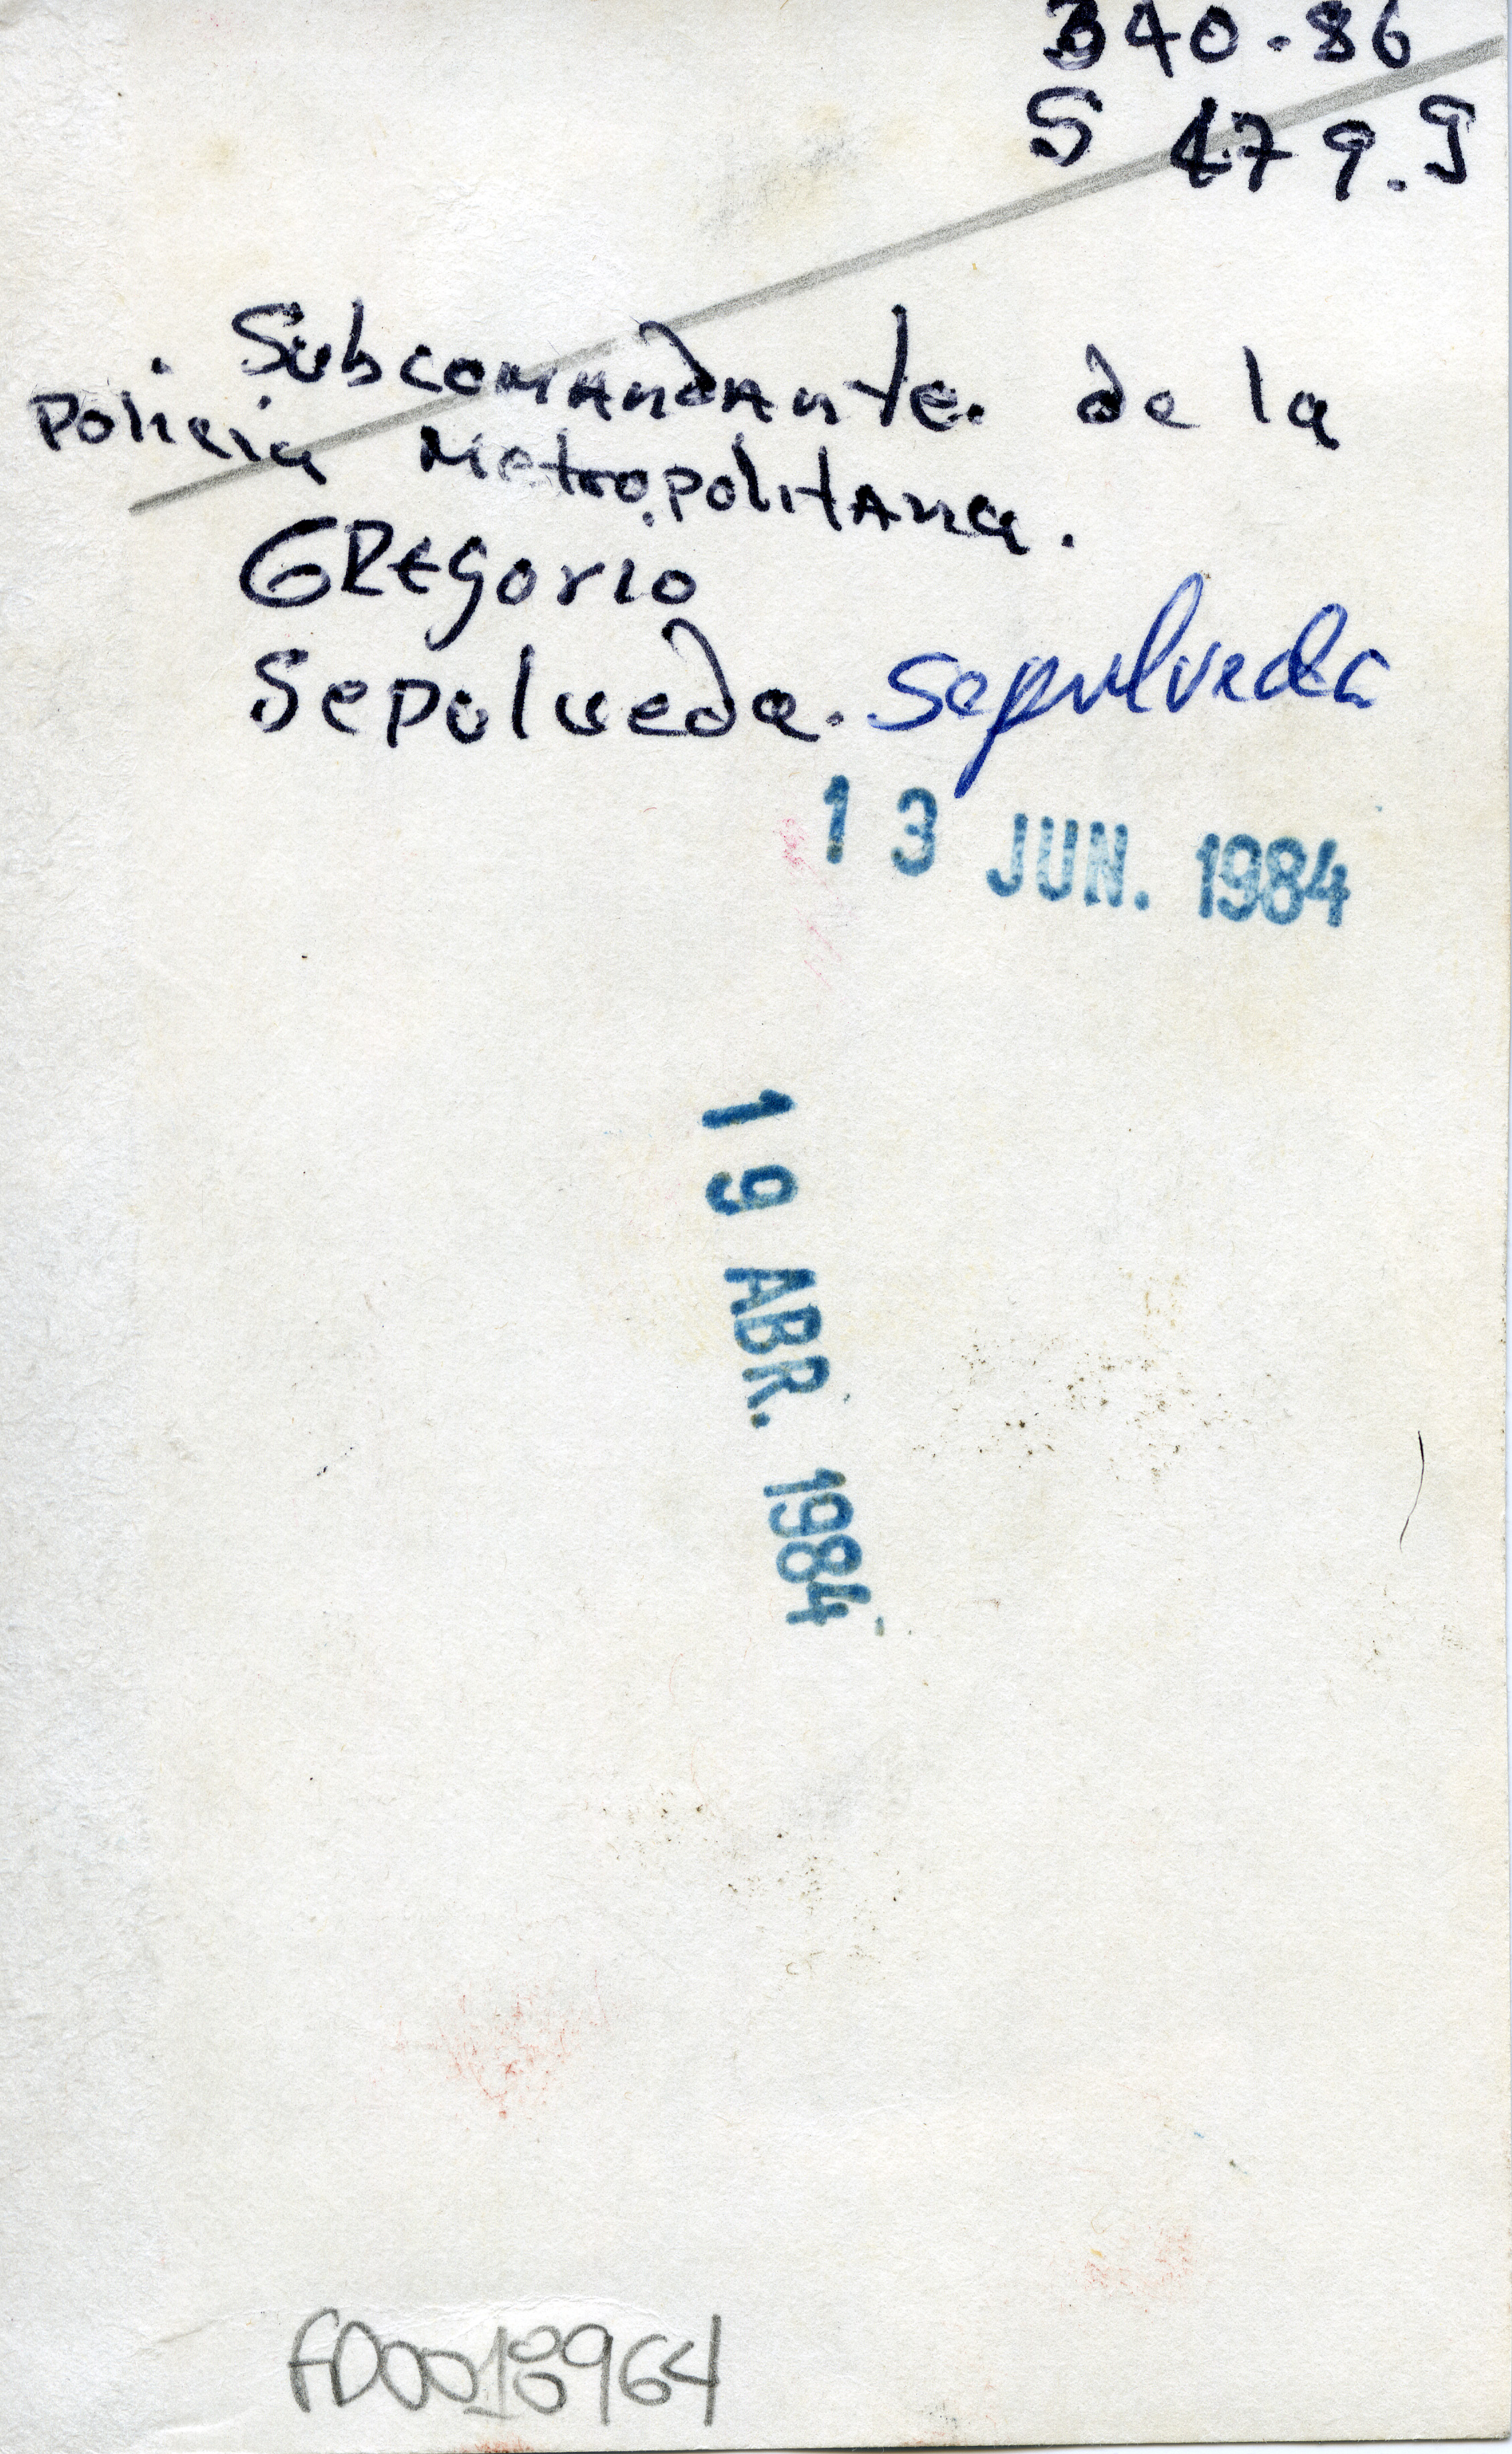 340.86
S 479.9
. Subcomandante. de la
Policia Metropolitana.
GREgorio
Sepulveda. Sepulveda
13 JUN. 1984
19 ABR. 1984
FD0018964